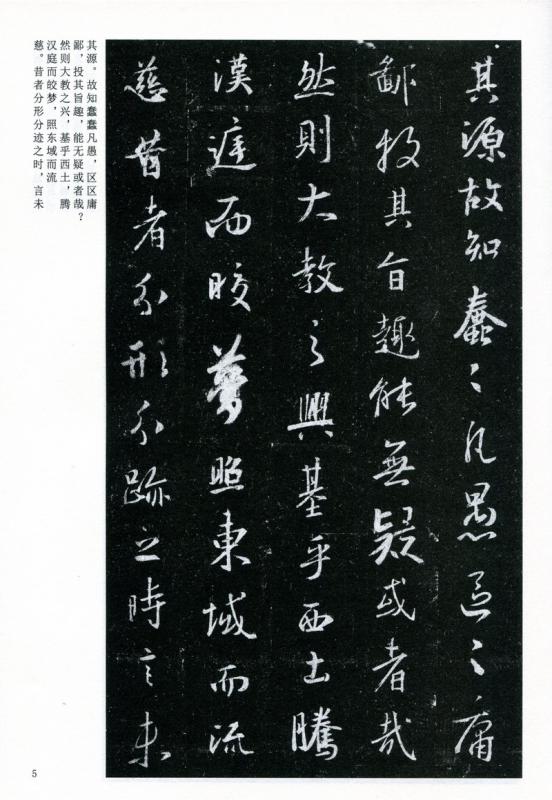 其源故知蠢〻凡愚區〻庸
鄙投其旨趣能無疑或者哉
然則大教之興基乎西土騰
漢庭而皎夢照東域而流
慈昔者分形分跡之時言未
其源。故知蠢蠢凡愚，区区庸
鄙，投其旨趣，能无疑或者哉？
然则大教之兴，基乎西土，腾
汉庭而皎梦，照东域而流
慈。昔者分形分迹之时，言未
5